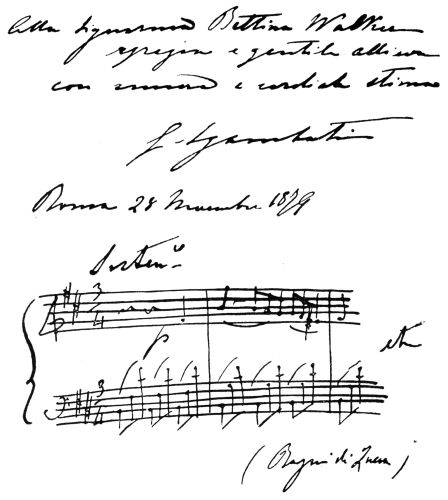 Alla Signorina Bettina Walker
egregia e gentile allieva
con sincera e cordiale stima
G. Sgambati
Roma 28 Novembre 1879
Sosten.
3
4
p
3
4
etc
(Bagni di Lucca)